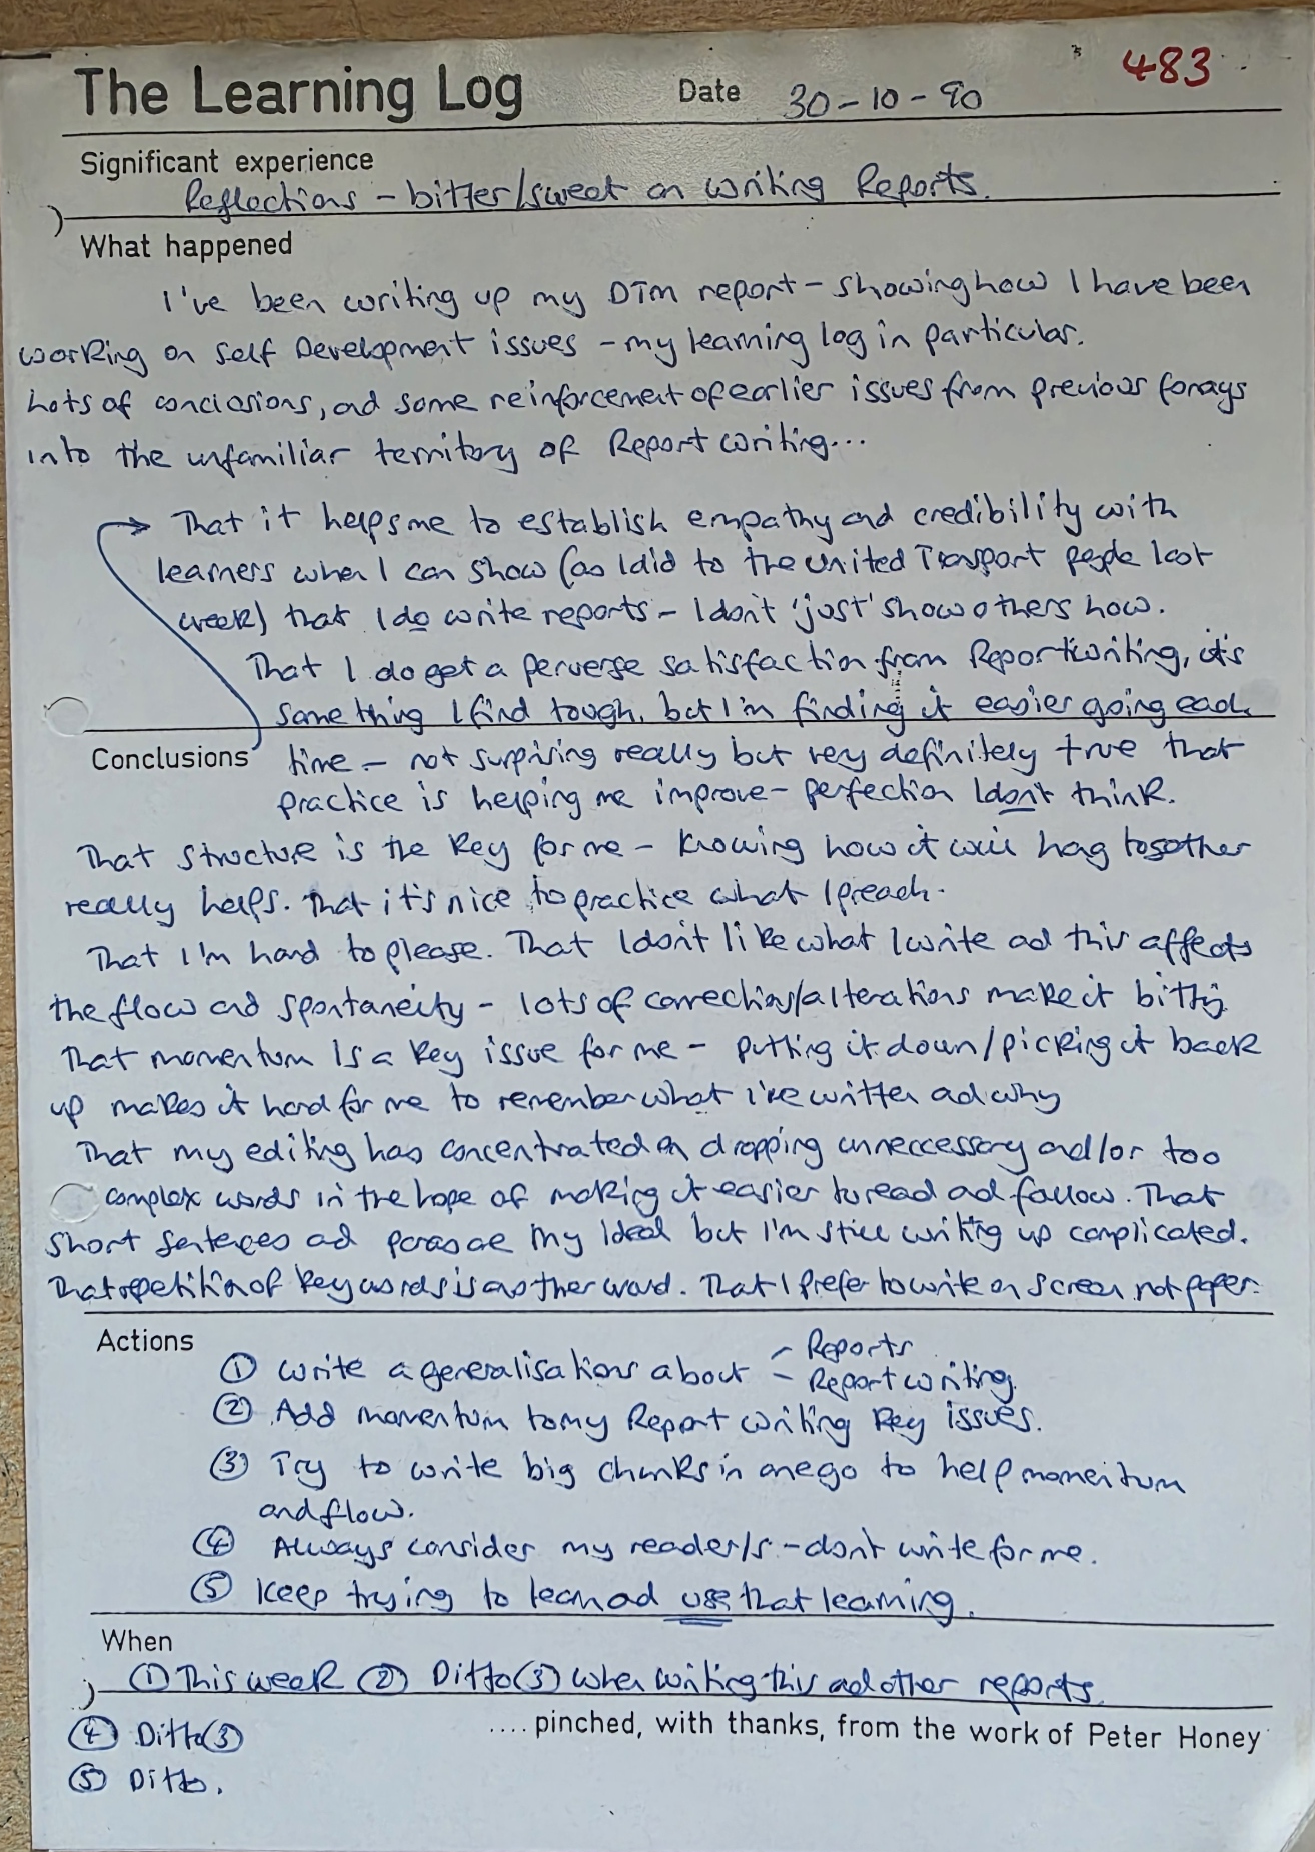 483
The Learning Log Date 30-10-90
Significant experience
Reflections - bitter/sweet on writing Reports.
What happened
I've been writing up my DTM report - showing how I have been
working on Self Development issues - my learning log in particular.
Lots of conclusions, and some reinforcement of earlier issues from previous forays
into the unfamiliar territory of Report writing...
That it helps me to establish empathy and credibility with
learners when I can show (as I did to the United Transport people last
week) that I do write reports - I don't 'just' show others how.
That I do get a perverse satisfaction from Report writing, it's
something I find tough, but I'm finding it easier going each
Conclusions time - not surprising really but very definitely true that
practice is helping me improve - perfection I don't think.
That structure is the key for me - knowing how it will hang together
really helps. That it's nice to practice what I preach.
That I'm hard to please. That I don't like what I write and this affects
the flow and spontaneity - lots of corrections/alterations make it bitty.
That momentum is a key issue for me - putting it down/picking it back
up makes it hard for me to remember what I've written and why
That my editing has concentrated on dropping unneccessary and/or too
complex words in the hope of making it easier to read and follow. That
short sentences and paras are my ideal but I'm still writing up complicated.
That repetition of key words is another word. That I prefer to write on screen not paper.
Actions
① Write a generalisations about - Reports
- Report writing.
② Add momentum to my Report writing key issues.
③ Try to write big chunks in one go to help momentum
and flow.
④ Always consider my reader/s - don't write for me.
⑤ Keep trying to learn and use that learning.
When
① This week ② Ditto (3) when writing this and other reports.
④ Ditto (3)
⑤ Ditto.
.... pinched, with thanks, from the work of Peter Honey